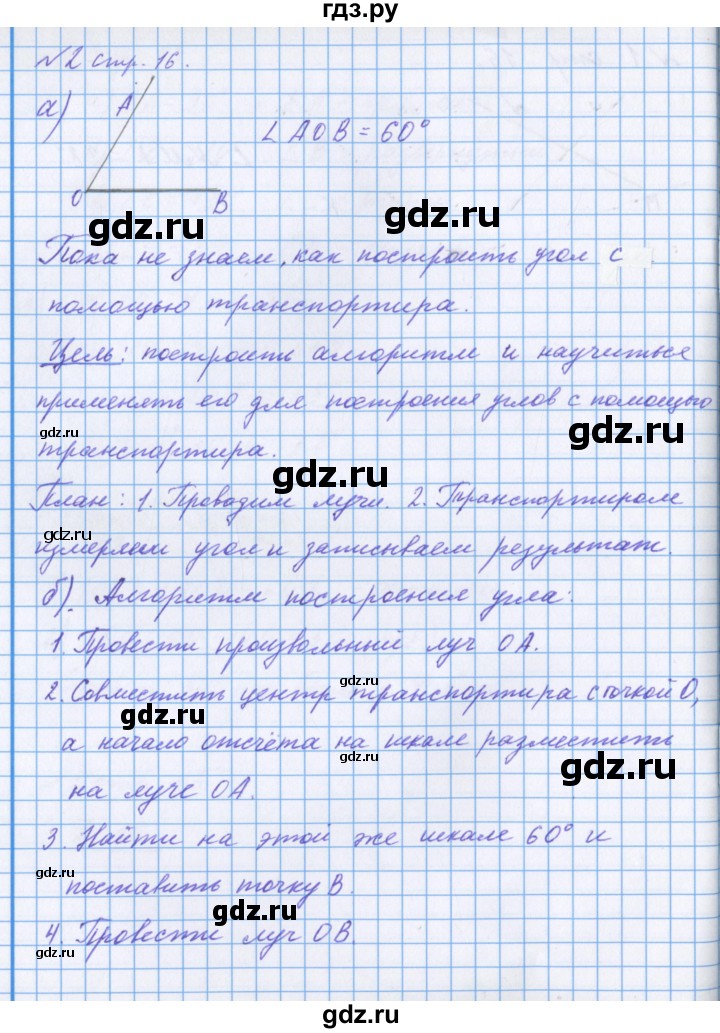 гдз.ру
№2 стр. 16.
а)
A
∠ AOB = 60°
O
B
gdz.ru
gdz.ru
Пока не знаем, как построить угол с
помощью транспортира.
Цель: построить алгоритм и научиться
применять его для построения углов с помощью
gdz.ru
gdz.ru
транспортира.
gdz.ru
План: 1. Проводим лучи. 2. Транспортиром
gdz.ru
измеряем угол и записываем результат.
б). Алгоритм построения угла:
1. Провести произвольный луч ОА.
gdz.ru
2. Совместить центр транспортира с точкой О,
gdz.ru
а начало отсчёта на шкале разместить
gdz.ru
gdz.ru
на луче ОА.
3. Найти на этой же шкале 60° и
gdz.ru
поставить точку В.
gdz.ru
4. Провести луч ОВ.
gdz.ru
gdz.ru